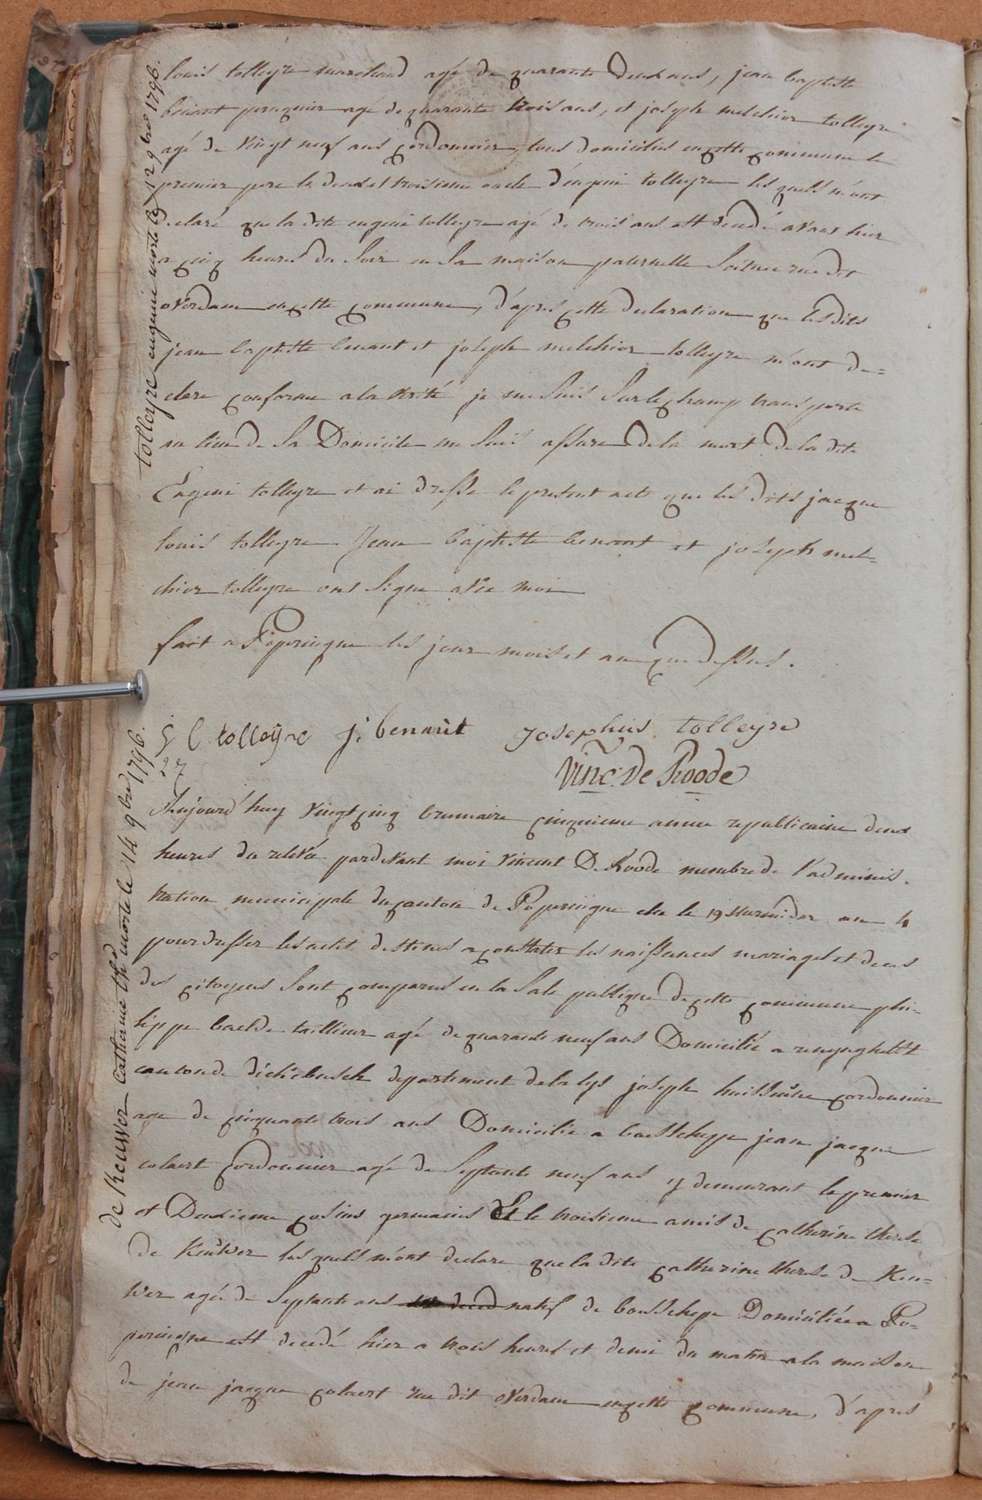 tolleÿre eugenie morte le 12 9bre 1796.
louis tolleyre marchand agé de quarante deux ans, jean baptiste
benaut peruquier agé de quarante trois ans, et joseph melchior tolleyre
agé de vingt neuf ans cordonnier tous domicilies en cette commune le
premier pere le deux et troisieme oncle d'eugeni tolleyre les quels m'ont
declaré que la dite eugeni tolleyre agé de trois ans est decedé avant hier
a cinq heures du soir en sa maison paternelle scituee rue dit
overdam en cette commune, d'apres cette declaration que les dits
jean baptiste benaut et joseph melchior tolleyre m'ont de=
clare conforme a la verité je me suis sur le champ transporte
au lieu de sa Domicile me suis assure de la mort de la dite
Eugeni tolleyre et ai dresse le present acte que les dits jacque
louis tolleyre Jean baptiste benaut et joseph mel=
chior tolleyre ont signe avec moi
fait a Poperingue les jour mois et an que dessus.
j l tolleÿre j: benaut josephus tolleyre
Vinc: De Roode
de Keuwer catherine thse morte le 14 9bre 1796.
Aujourd'huy vingt cinq brumaire cinquieme annee republicaine deux
heures du relevé pardevant moi vincent De Roode membre de l'adminis-
tration municipale du canton de Poperingue elu le 19 Murmidor an 4
pour dresser les actes destenes a constater les naissances mariages et deces
des citoyens sont comparus en la sale publique de cette commune phi-
lippe baelde tailleur agé de quarante neuf ans Domicilié a renynghelst
canton de dickebusch departement de la lys joseph cordonnier
age de cinquante trois ans Domicilie a boesscheppe jean jacque
colaert cordonnier agé de septante neuf ans y demeurant le premier
et Deuxieme cosins germains Et le troisieme amis de catherine therese
de Keuwer les quels m'ont declare que la dite catherine therese de Keu=
wer agé de septante ans natif de boesschepe Domiciliée a Po=
peringue est decedé hier a trois heures et demi du matin a la maison
de jean jacque colaert rue dit overdam en cette commune, d'aprés